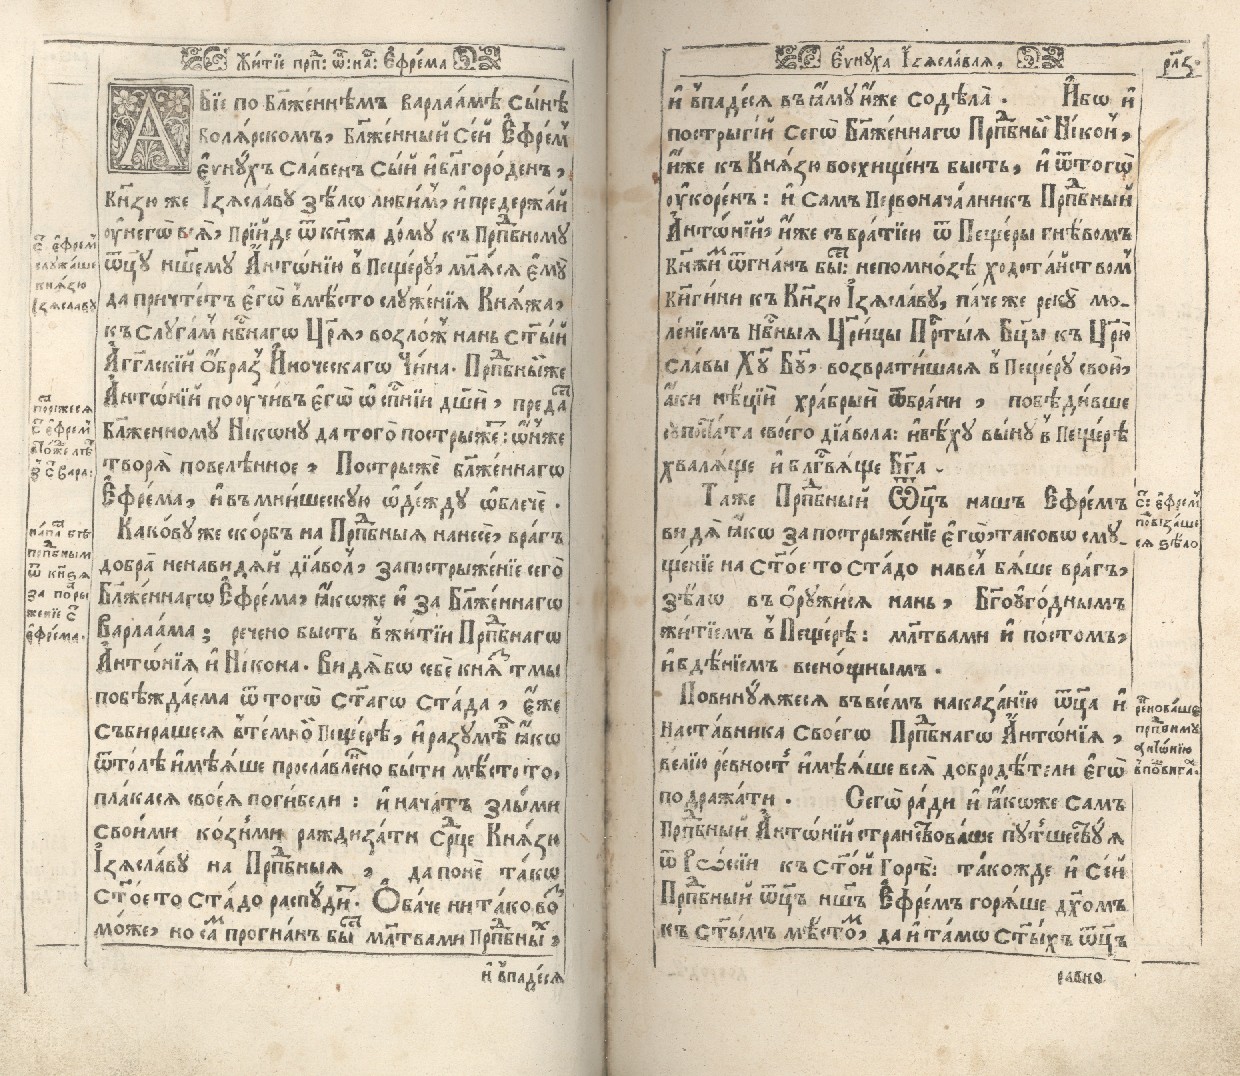 Житїе прп҃: ѿ: на҃: Єфре́ма
А
БЇе по Бл҃же́ннѣмъ Варлаа́мѣ Сы́нѣ
Болѧрскомъ, Бл҃же́нный Се́й Єфре́мъ
Єѵнꙋ́хъ сла́венъ сы́й и҆ Бл҃горо́денъ,
Кн҃зю же І҆зѧсла́вꙋ ѕѣлѡ̀ люби́мъ, и҆ предержа́й
ᲂу҆ негѡ̀ всѧ̀, прїи́де ѿ кнѧ́жа до́мꙋ къ Прпⷣбномꙋ
Ѿц҃ꙋ нш҃емꙋ А҆нтѡ́нїю в̾ Пеще́рꙋ, молѧ́сѧ є҆мꙋ̀
да причте́тъ є҆го̀ вмѣ́сто слꙋже́нїѧ Кнѧ́жа,
къ слꙋга́мъ нбⷭ҇нагѡ Цр҃ѧ̀, возло́жъ нань ст҃ы́й
А҆́гг҃лскїй Ѻ҆́бразъ И҆́ноческагѡ Чи́на. Прпⷣбный же
А҆нтѡ́нїй поᲂучи́въ є҆го̀ ѡ҆ сп҃се́нїи дш҃и, преда́стъ
Бл҃же́нномꙋ Ни́кѡнꙋ да того̀ постриже́тъ: ѻ҆́нже
творѧ̀ повелѣ́нное, Пострижѐ бл҃же́ннагѡ
Єфре́ма, и҆ въ мни́шескꙋю ѡ҆де́ждꙋ ѡ҆блечѐ.
Какову́ же ско́рбь на Прпⷣбныѧ нанесѐ врагъ
добра̀ ненави́дѧй дїа́волъ, за постриже́нїе сего̀
Бл҃же́ннагѡ Єфре́ма, ꙗ҆́коже и҆ за Бл҃же́ннагѡ
Варлаа́ма; рече́но бы́сть в̾ житїи Прпⷣбнагѡ
А҆нтѡ́нїѧ и҆ Ни́кона. Ви́дѧ бо себѐ кнѧ́зь тмы
побѣжда́ема ѿ тогѡ̀ ст҃а́гѡ ста́да, є҆́же
събира́шесѧ в̾ те́мной Пеще́рѣ, и҆ разꙋмѣ́въ ꙗ҆́кѡ
ѿто́лѣ и҆мѣ́ѧше просла́вленно бы́ти мѣ́сто то,
пла́касѧ своеѧ̀ поги́бели: и҆ нача́тъ злы́ми
свои́ми ко́зньми раждиза́ти ср҃це Кнѧ́зю
І҆зѧсла́вꙋ на Прпⷣбныѧ, да понѐ та́кѡ
ст҃о́е то ста́до распꙋ́дитъ. Ѻ҆ба́че ни та́ко возмо́же,
но са́мъ прогна́нъ бы́сть мл҃твами Прпⷣбныхъ,
и҆ впаде́сѧ
С҃ є҆фре́мъ
слꙋжа́ше
кнѧ́зю
І҆зѧсла́вꙋ
С҃ є҆фре́мъ
напа́сть бѣ̀
прпⷣбнымъ
ѿ кн҃зѧ
за постри
же́нїе С҃
є҆фре́ма.
Єѵнꙋ́ха І҆зѧсла́вѧ,
рл҃ѕ
и҆ впаде́сѧ въ ꙗ́мꙋ ю҆́же содѣ́ла. И҆́бо и҆
постры́гїй сего̀ Бл҃же́ннагѡ Прпⷣбный Ни́конъ,
и҆́же къ Кнѧ́зю восхище́нъ бы́сть, и҆ ѿ тогѡ̀
ᲂукоре́нъ: и҆ са́мъ Первонача́лникъ Прпⷣбный
А҆нтѡ́нїй, и҆́же съ бра́тїею ѿ Пеще́ры гнѣ́вомъ
Кнѧ́жимъ ѿгна́нъ бы́сть: непомно́зѣ ходота́йствомъ
Кн҃ги́ни къ Кн҃зю І҆зѧсла́вꙋ, па́че же рекꙋ̀ мо-
ле́нїемъ нбⷭ҇ныѧ Цр҃и́цы Прⷱ҇тыѧ Бц҃ы къ Цр҃ю̀
сла́вы Хⷭ҇ꙋ̀ Бг҃ꙋ, возврати́шасѧ в̾ Пеще́рꙋ свою̀,
а҆́ки нѣ́цїи хра́брый ѿ бра́ни, побѣди́вше
сꙋпоста́та своего̀ дїа́вола: и҆ бѣ́хꙋ вы́нꙋ в̾ Пеще́рѣ
хва́лѧще и҆ блг҃вѧще Бг҃а.
Таже Прпⷣбный Ѿц҃ъ нашъ Єфре́мъ
ви́дѧ ꙗ҆́кѡ за постриже́нїе є҆гѡ̀, таково смꙋ-
ще́нїе на ст҃о́е то ста́до наве́лъ бѧ́ше вра́гъ,
ѕѣлѡ̀ въѻрꙋжи́сѧ нань, Бг҃оꙋго́днымъ
житїе́мъ в̾ Пеще́рѣ: мл҃твами и҆ посто́мъ,
и҆ бдѣ́нїемъ всено́щнымъ.
Повинꙋ́ѧжесѧ въ все́мъ наказа́нїю ѿц҃а и҆
наста́вника своегѡ̀ Прпⷣбнагѡ А҆нтѡ́нїѧ,
ве́лїю ре́вность и҆мѣ́ѧше всѧ̀ добродѣ́тели є҆гѡ̀
подража́ти. Сегѡ̀ ра́ди и҆ ꙗ҆́коже са́мъ
Прпⷣбный А҆нтѡ́нїй стра́нствова́ше пꙋтеше́ствꙋѧ
ѿ Рѡссі́и къ ст҃о́й Горѣ̀: та́кожде и҆ се́й
Прпⷣбный ѿц҃ъ нш҃ъ Єфре́мъ горѧ́ше дх҃омъ
къ ст҃ы́мъ мѣ́стомъ, да и҆ та́мѡ ст҃ы́хъ ѿц҃ъ
равно
С҃: є҆фре́мъ
подвиза́ше
сѧ ѕѣлѡ̀
ревнова́ше
прпⷣбномꙋ
а҆нтѡ́нїю
в̾ по́двигахъ